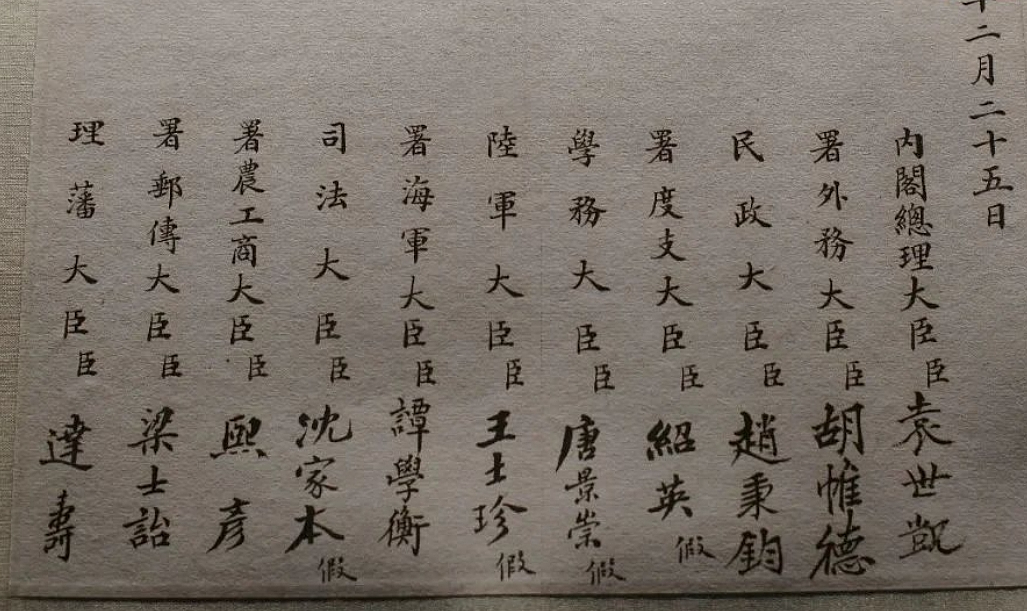 十二月二十五日
內閣總理大臣臣袁世凱
署外務大臣臣胡惟德
民政大臣臣趙秉鈞
署度支大臣臣紹英假
學務大臣臣唐景崇假
陸軍大臣臣王士珍假
署海軍大臣臣譚學衡
司法大臣臣沈家本假
署農工商大臣臣熙彥
署郵傳大臣臣梁士詒
理藩大臣臣達壽